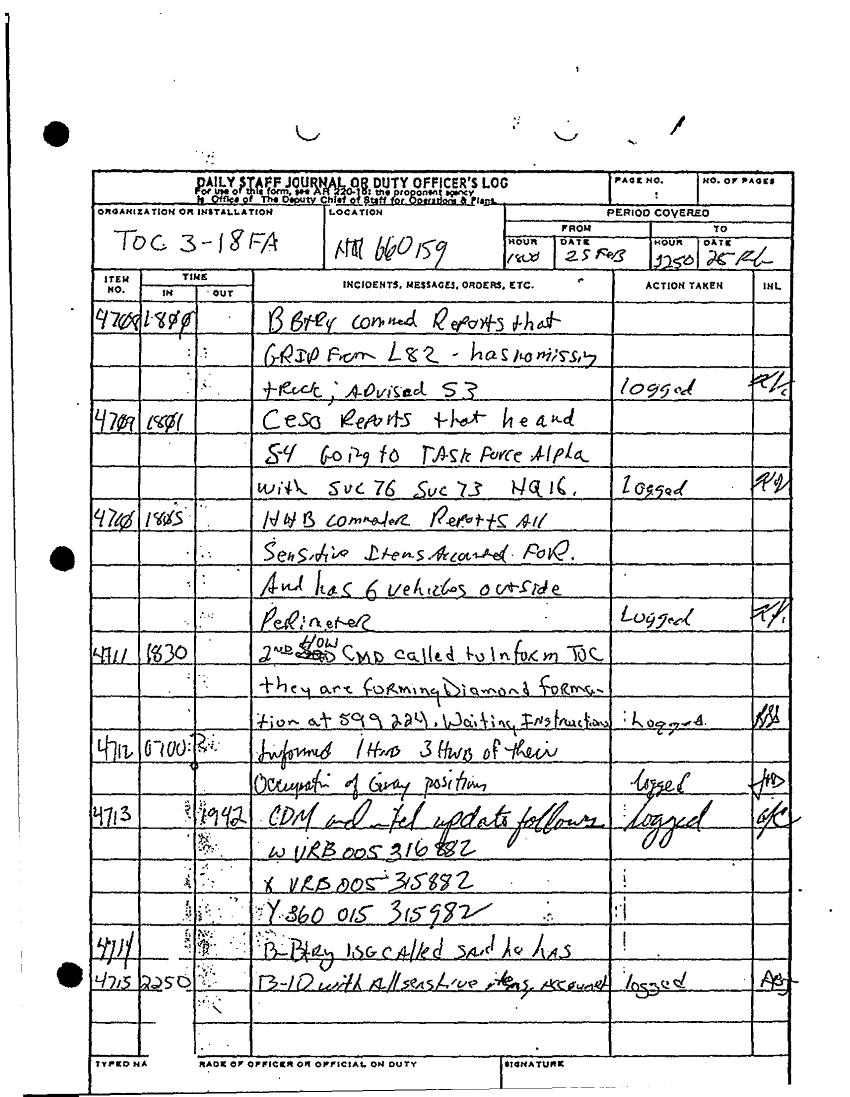 DAILY STAFF JOURNAL OR DUTY OFFICER'S LOG
For use of this form, see AR 220-15; the proponent agency
is Office of The Deputy Chief of Staff for Operations & Plans.
PAGE NO.
NO. OF PAGES
ORGANIZATION OR INSTALLATION
TOC 3-18FA
LOCATION
660159
PERIOD COVERED
FROM
TO
HOUR
1800
DATE
25 FEB
HOUR
2250
DATE
25 Feb
ITEM NO.
TIME
IN
OUT
INCIDENTS, MESSAGES, ORDERS, ETC.
ACTION TAKEN
INL
4708 1800 B Btry commed Reports that
GRID From L82 - has no missin
truck; Advised S3 logged
4709 1801 CESO Reports that he and
S-4 Going to TASK Force Alpha
with SVC 76 SVC 73 HQ 16. Logged
1805 HHB Reports All
Sensitive Items Accounted FOR.
And has 6 vehicles outside
Perimeter Logged
4711 1830 2ND HOW CMD called to Inform TOC
they are forming Diamond forma-
tion at 599 224. Waiting Instructions Logged.
4712 0700 Informed 1 HWB 3 HWB of their
Occupatin of Gray position logged
4713 1942 CDM and intel update follows logged
W VRB 005 316882
X VRB 005 315882
Y 360 015 315982
4714 B-Btry 1SG CAlled SAid he hAS
4715 2250 B-10 with All sensitive items Account logged
TYPED NA
RADE OF OFFICER OR OFFICIAL ON DUTY
SIGNATURE